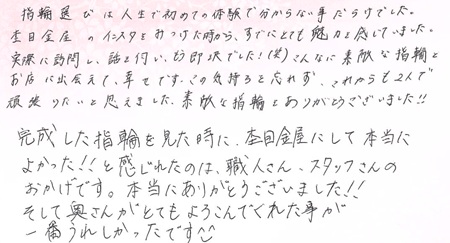 指輪選びは人生で初めての体験で分からない事だらけでした。
杢目金屋のインスタをみつけた時から、すでにとても魅力を感じていました。
実際に訪問し、話を伺い、即決でした!(笑)こんなに素敵な指輪と
お店に出会えて、幸せです。この気持ちを忘れず、これからも2人で
頑張りたいと思えました。素敵な指輪をありがとうございました!!
完成した指輪を見た時に、杢目金屋にして本当に
よかった!!と感じれたのは、職人さん、スタッフさんの
おかげです。本当にありがとうございました!!
そして奥さんがとてもよろこんでくれた事が
一番うれしかったです